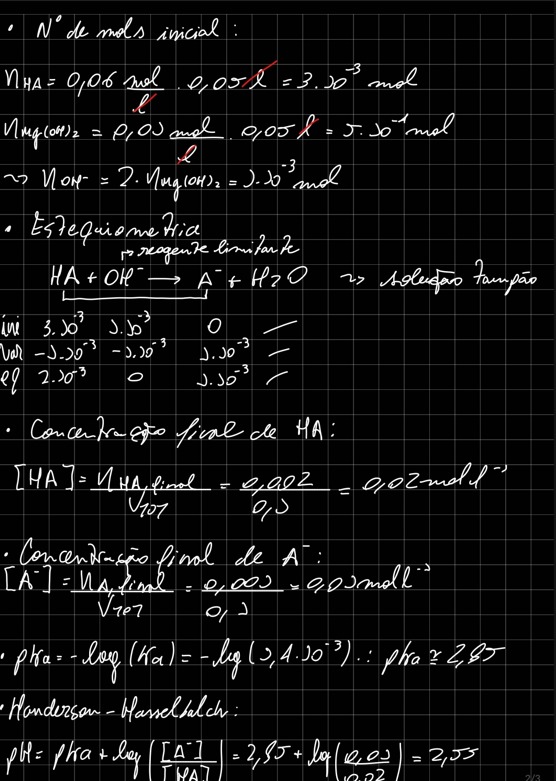 • Nº de mols inicial :
nHA = 0,06 mol/l . 0,05 l = 3.10^-3 mol
nMg(OH)2 = 0,01 mol/l . 0,05 l = 5.10^-4 mol
~> nOH- = 2. nMg(OH)2 = 1.10^-3 mol
• Estequiometria
↳ reagente limitante
HA + OH^- → A^- + H2O ~> solução tampão
ini 3.10^-3 1.10^-3 0 —
var -1.10^-3 -1.10^-3 1.10^-3 —
eq 2.10^-3 0 1.10^-3 —
• Concentração final de HA :
[HA] = nHA,final/VTOT = 0,002/0,1 = 0,02 mol l^-1
• Concentração final de A^- :
[A^-] = nA,final/VTOT = 0,001/0,1 = 0,01 mol l^-1
• pKa = -log (Ka) = -log (1,4.10^-3) ∴ pKa ≅ 2,85
• Handerson-Hasselbalch :
pH = pKa + log ([A^-]/[HA]) = 2,85 + log (0,01/0,02) = 2,55
2/3